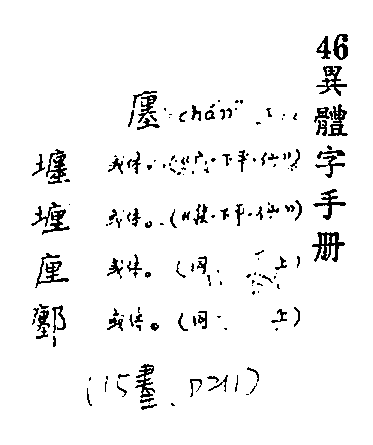 46
異體字手册
廛 chán
壥 或体。(《广·下平·仙》)
㙻 或体。(《集·下平·仙》)
厘 或体。(同 上)
鄽 或体。(同 上)
(15畫、0211)